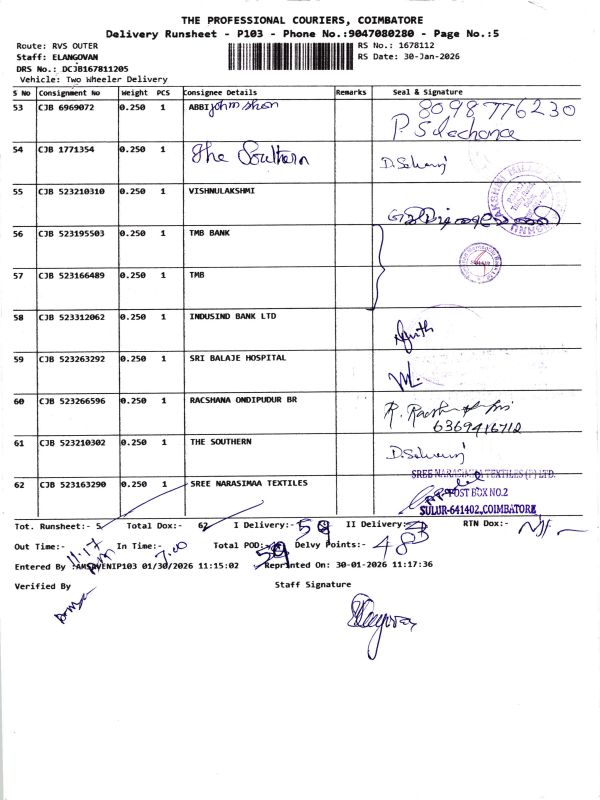 THE PROFESSIONAL COURIERS, COIMBATORE
Delivery Runsheet - P103 - Phone No.:9047080280 - Page No.:5
Route: RVS OUTER
RS No.: 1678112
Staff: ELANGOVAN
RS Date: 30-Jan-2026
DRS No.: DCJB167811205
Vehicle: Two Wheeler Delivery
S No Consignment No Weight PCS Consignee Details Remarks Seal & Signature
53 CJB 6969072 0.250 1 ABBI john shon 8098776230
54 CJB 1771354 0.250 1 The Southern D. Selvaraj
55 CJB 523210310 0.250 1 VISHNULAKSHMI
56 CJB 523195503 0.250 1 TMB BANK
57 CJB 523166489 0.250 1 TMB
58 CJB 523312062 0.250 1 INDUSIND BANK LTD
59 CJB 523263292 0.250 1 SRI BALAJE HOSPITAL
60 CJB 523266596 0.250 1 RACSHANA ONDIPUDUR BR
6369416712
61 CJB 523210302 0.250 1 THE SOUTHERN D. Selvaraj
62 CJB 523163290 0.250 1 SREE NARASIMAA TEXTILES SREE NARASIMAA TEXTILES (P) LTD.
POST BOX NO.2
SULUR-641402, COIMBATORE
Tot. Runsheet:- 5 Total Dox:- 62 I Delivery:- 59 II Delivery:- 3 RTN Dox:- Nil
Out Time:- 11.17 Am In Time:- 7.00 Total POD:- 59 Delvy Points:- 48
Entered By :AMSAVENIP103 01/30/2026 11:15:02 Reprinted On: 30-01-2026 11:17:36
Verified By Staff Signature